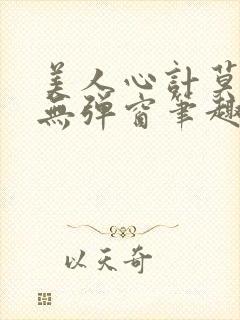 美人心計莫
無彈窗筆趣
以天奇